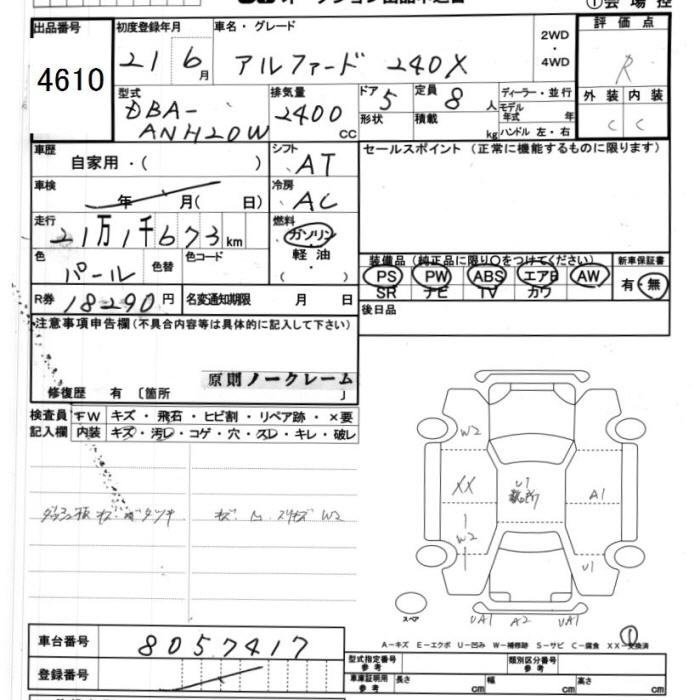 ①会場控
出品番号
4610
初度登録年月
21 6月
車名・グレード
アルファード 240X
2WD
・
4WD
評価点
R
型式
DBA-
ANH20W
排気量
2400
CC
ドア 5
形状
定員 8人
積載 kg
ディーラー・並行
モデル
年式 年
ハンドル 左・右
外装 内装
C C
車歴
自家用・( )
シフト
AT
セールスポイント (正常に機能するものに限ります)
車検
年 月( 日)
冷房
AC
走行
21万1千673km
燃料
ガソリン
軽油
( ・ )
色
パール
色替
色コード
装備品 (純正品に限り○をつけてください)
PS PW ABS エアB AW
SR ナビ TV カワ
新車保証書
有・無
R券 18290円
名変通知期限 月 日
後日品
注意事項申告欄(不具合内容等は具体的に記入して下さい)
原則ノークレーム
修復歴 有 〔箇所 〕
検査員
記入欄
FW キズ・飛石・ヒビ割・リペア跡・×要
内装 キズ・汚レ・コゲ・穴・スレ・キレ・破レ
W2
XX
U1
A1
W2
U1
スペア
UA1 A2 UA1
①
A-キズ E-エクボ U-凹み W-補修跡 S-サビ C-腐食 XX-交換済
車台番号 8057417
登録番号
型式指定番号
参考
類別区分番号
参考
車庫証明用
参考
長さ cm 幅 cm 高さ cm